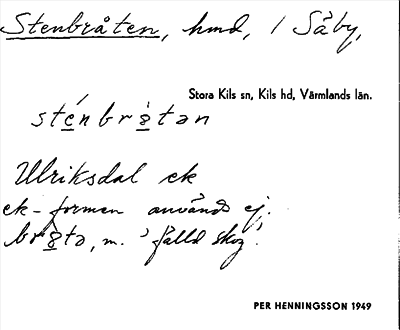 Stenbråten, hmd, / Såby,
Stora Kils sn, Kils hd, Värmlands län.
sténbrò̲tən
Ulriksdal ek
ek-formen används ej.
bro̲tə, m. 'fälld skog'.
PER HENNINGSSON 1949